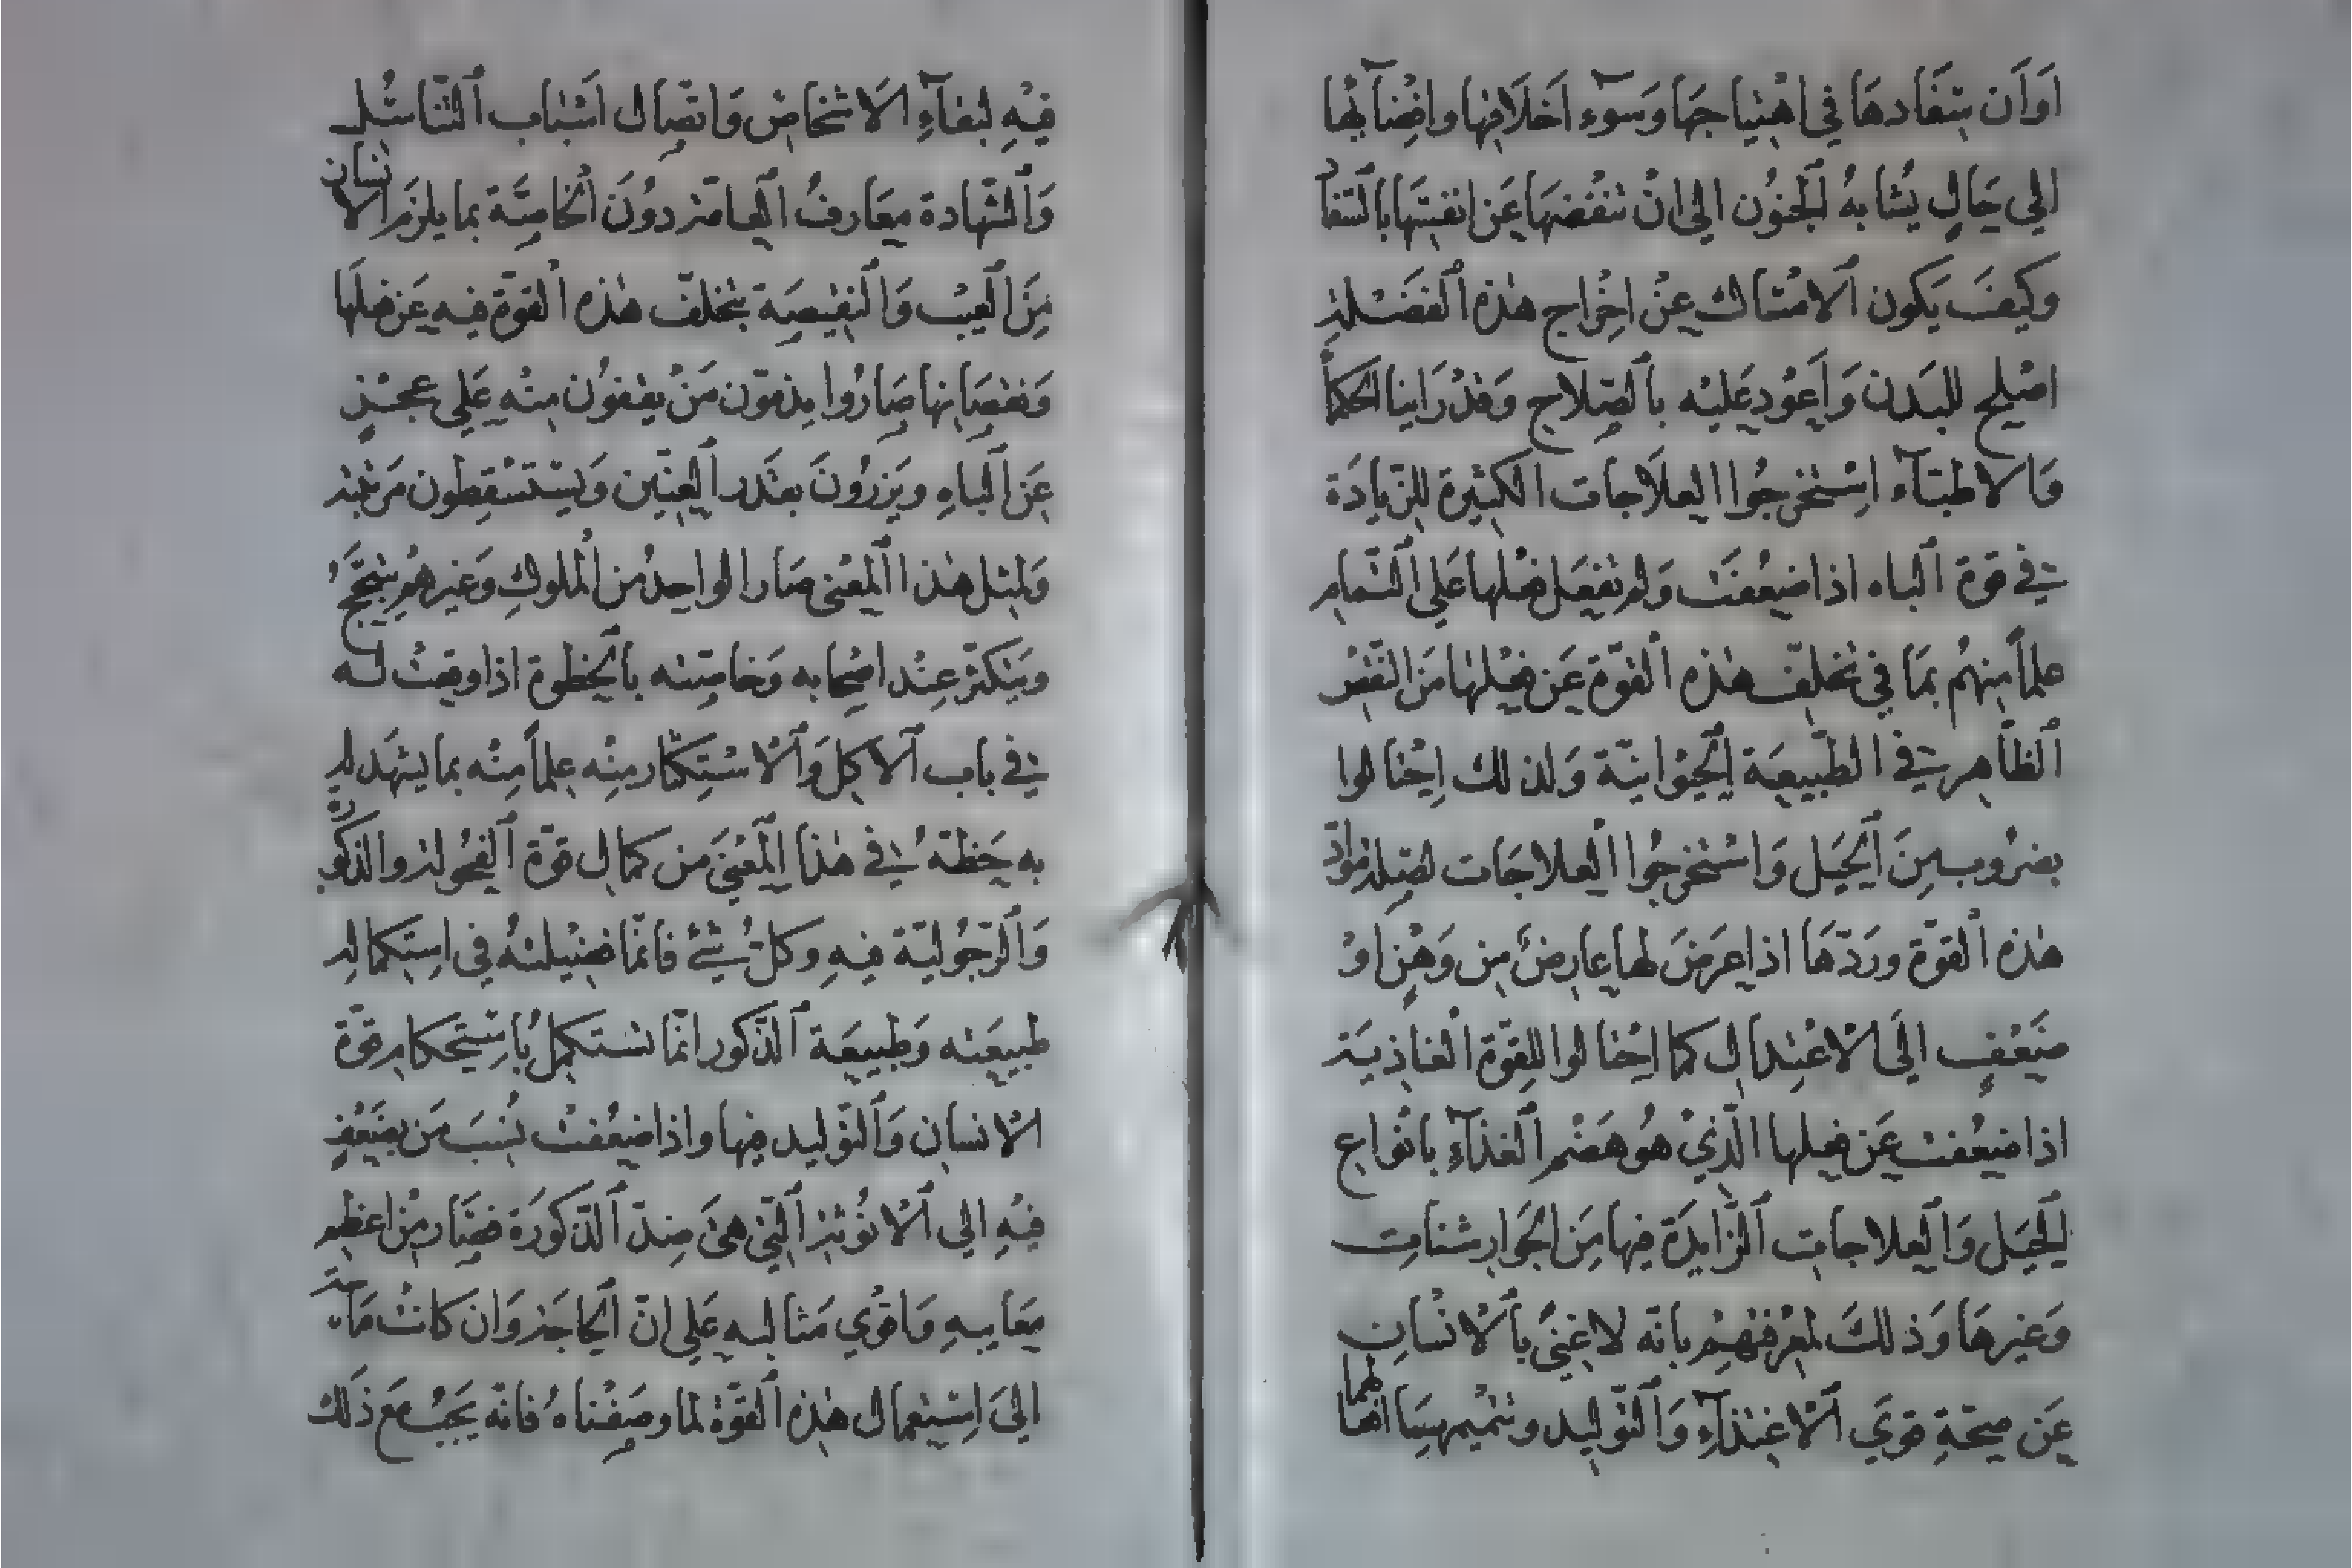 اوان سفادها في اهتياجها وسوء اخلاقها وافضائها
الي حال يشابه الجنون الي ان تنفضها عن انفسها بالسفاد
وكيف يكون الامساك عن اخراج هذه الفضلة
اصلح للبدن واعود عليه بالصلاح وقد راينا الحكما
والاطباء استخرجوا العلاجات الكثيرة للزيادة
في قوة الباه اذا ضعفت ولم تفعل فعلها علي التمام
علما منهم بما في تخلف هذه القوة عن فعلها من النقص
الظاهر في الطبيعة الحيوانية ولذلك احتالوا
بضروب من الحيل واستخرجوا العلاجات لصلة مواد
هذه القوة وردها اذا عرض لها عارض من وهن او
ضعف الي الاعتدال كما احتالوا للقوة الغاذية
اذا ضعفت عن فعلها الذي هو هضم الغذاء بانواع
الحيل والعلاجات الزايدة فيها من الجوارشنات
وغيرها وذلك لمعرفتهم بانه لا غني بالانسان
عن صحة قوي الاغتذاء والتوليد وتتميمهما افعالهما
فيه لبقاء الاشخاص واتصال اسباب التناسل
والشهادة معارف العامة دون الخاصة بما يلزم الانسان
من العيب والنقيصة بتخلف هذه القوة فيه عن فعلها
ونقصانها صاروا يذمون من يقفون منه علي عجز
عن الباه ويزرون بقدر العنين ويستسقطون مرتبته
ولمثل هذا المعني صار الواحد من الملوك وغيرهم يتبجح
ويتكثر عند اصحابه وخاصته بالحظوة اذا وقعت له
في باب الاكل والاستكثار منه علما منه بما يشهد له
به حظه في هذا المعني من كمال قوة الفحولة والذكورة
والرجولية فيه وكل شيء فانما فضيلته في استكماله
طبيعته وطبيعة الذكور انما تستكمل باستحكام قوة
الانسان والتوليد فيها واذا ضعفت نسب من يضعف
فيه الي الانوثة التي هي ضد الذكورة فصار من اعظم
معايبه واقوي مثالبه علي ان الحاجة وان كانت ماسة
الي استعمال هذه القوة لما وصفناه فانه يجب مع ذلك